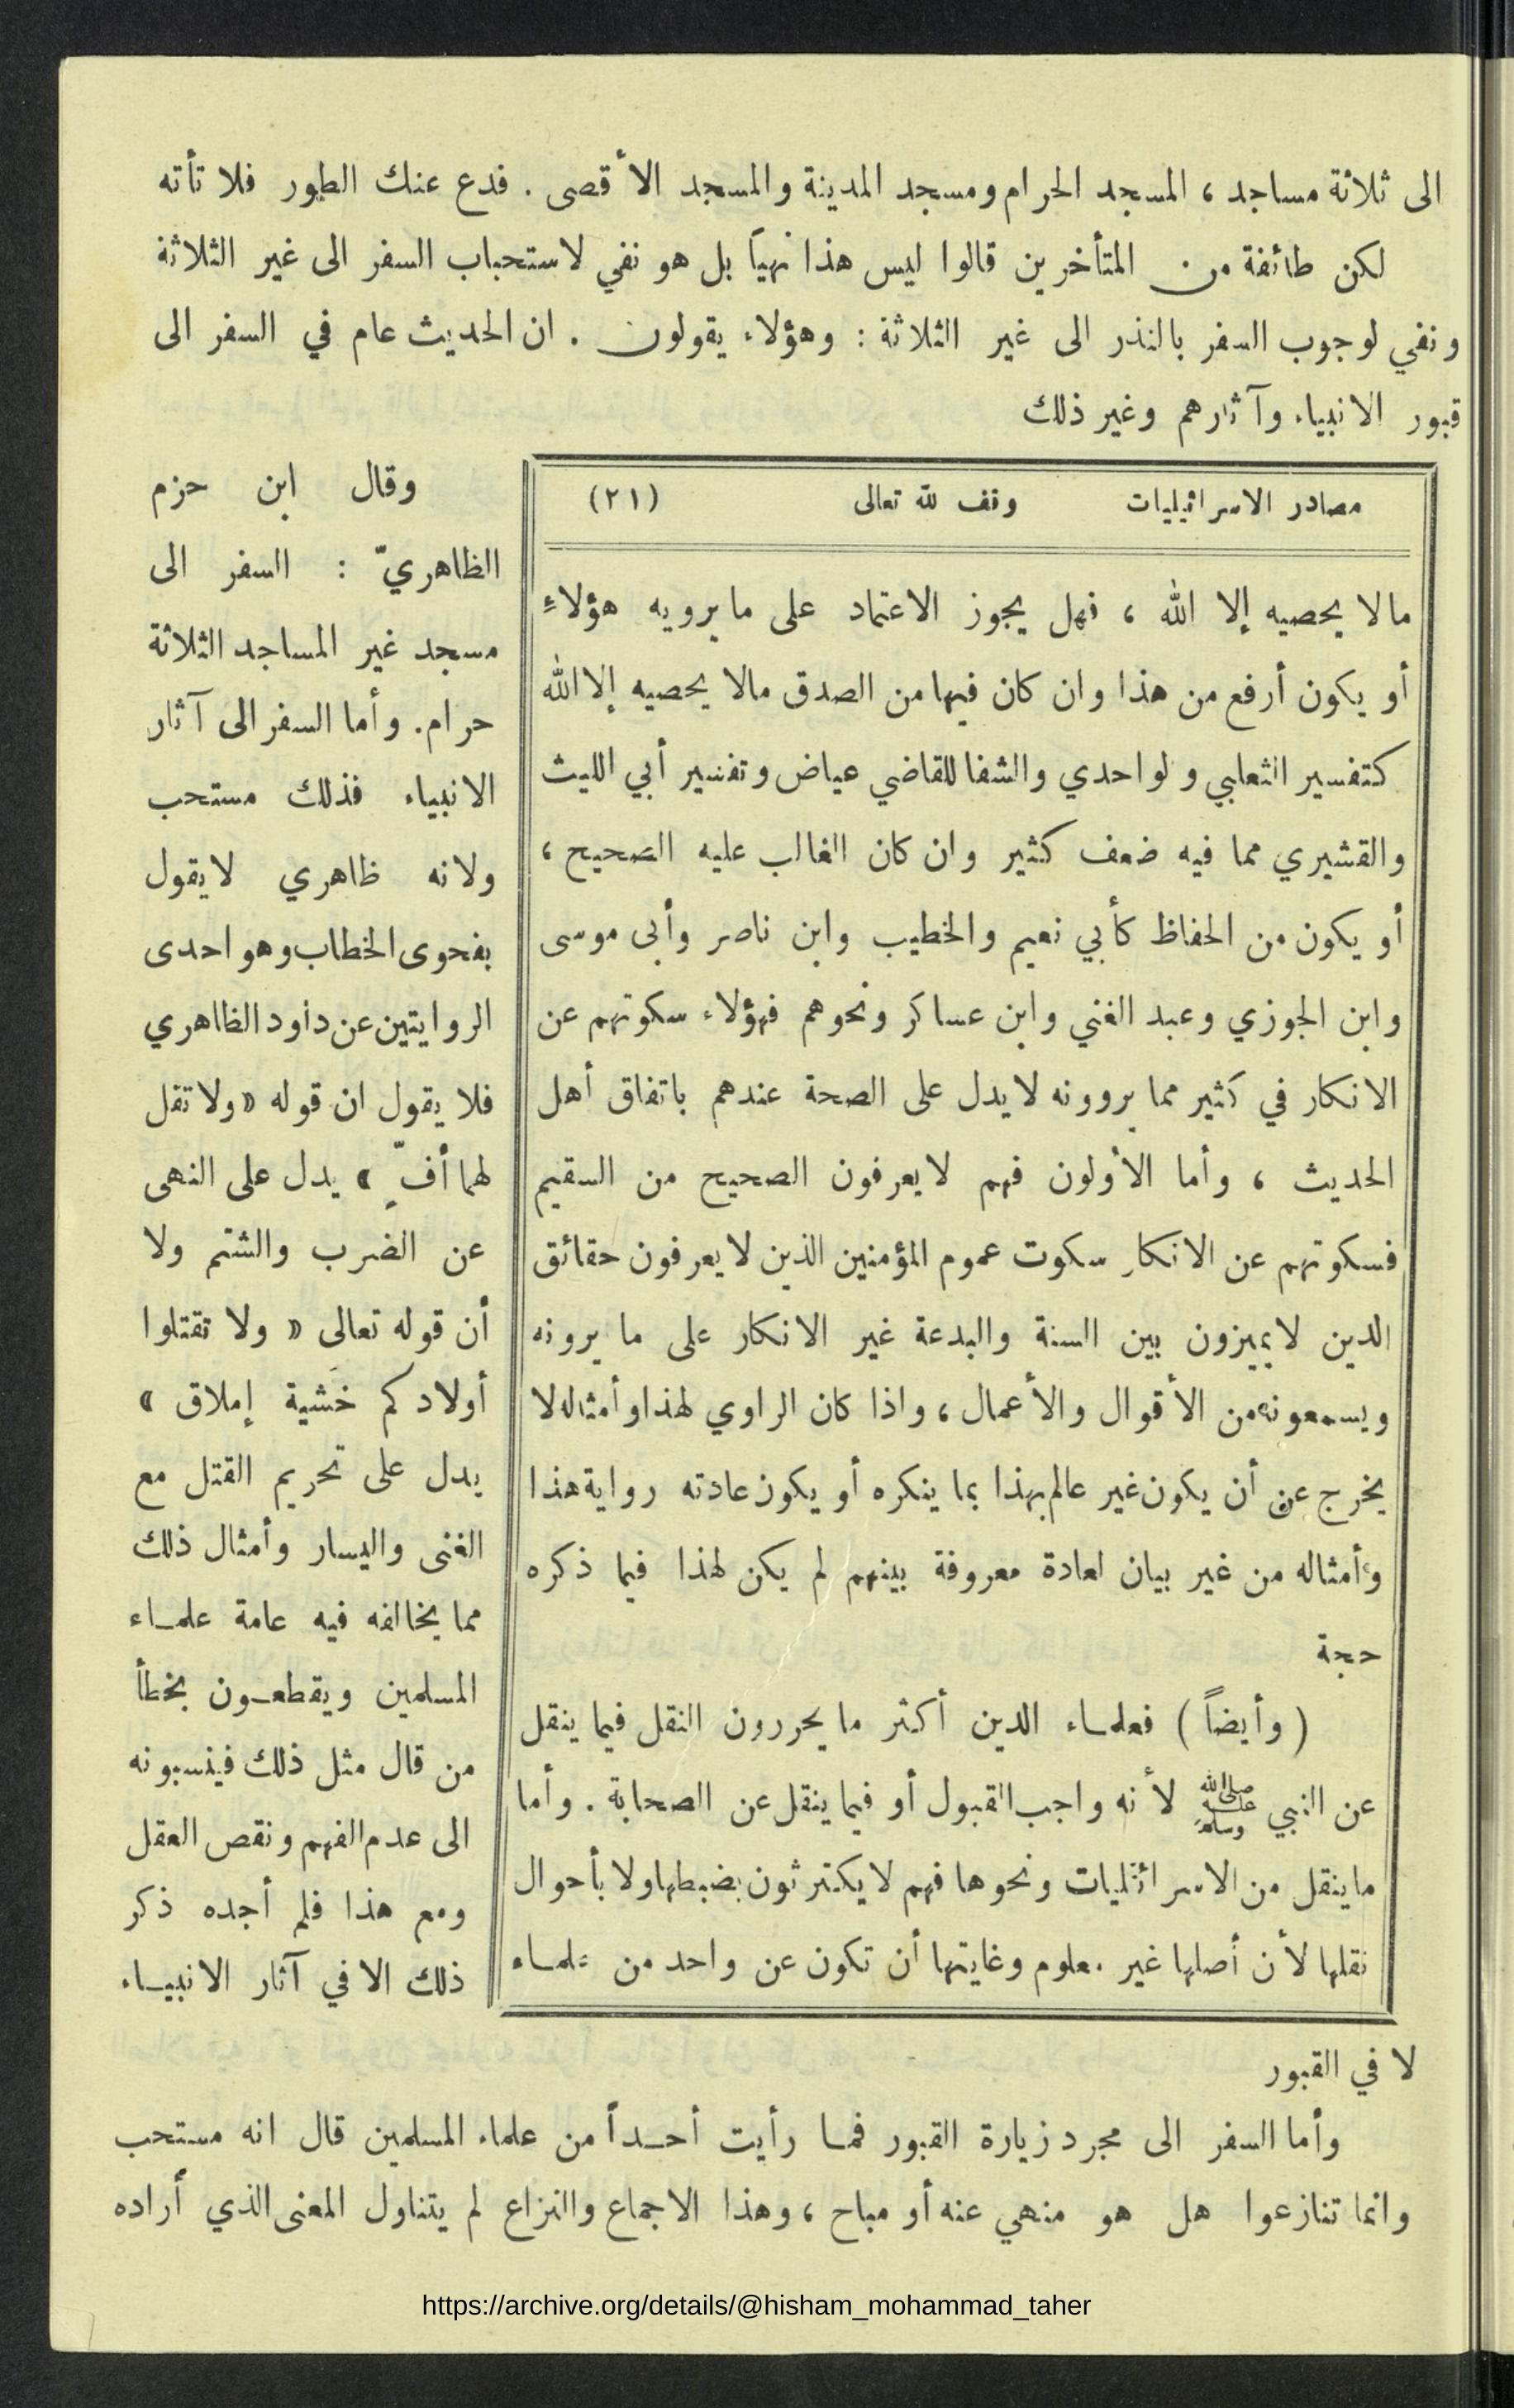 الى ثلاثة مساجد ، المسجد الحرام ومسجد المدينة والمسجد الأقصى . فدع عنك الطور فلا تأته
لكن طائفة من المتأخرين قالوا ليس هذا نهياً بل هو نفي لاستحباب السفر الى غير الثلاثة
ونفي لوجوب السفر بالنذر الى غير الثلاثة : وهؤلاء يقولون . ان الحديث عام في السفر الى
قبور الانبياء وآثارهم وغير ذلك
مصادر الاسرائيليات وقف لله تعالى (٢١)
مالا يحصيه إلا الله ، فهل يجوز الاعتماد على ما يرويه هؤلاءِ
أو يكون أرفع من هذا وان كان فيها من الصدق مالا يحصيه إلا الله
كتفسير الثعلبي و لواحدي والشفا للقاضي عياض وتفسير أبي الليث
والقشيري مما فيه ضعف كثير وان كان الغالب عليه الصحيح ،
أو يكون من الحفاظ كأبي نعيم والخطيب وابن ناصر وأبى موسى
وابن الجوزي وعبد الغني وابن عساكر ونحوهم فهؤلاء سكوتهم عن
الانكار في كثير مما يروونه لا يدل على الصحة عندهم باتفاق أهل
الحديث ، وأما الأولون فهم لا يعرفون الصحيح من السقيم
فسكوتهم عن الانكار سكوت عموم المؤمنين الذين لا يعرفون حقائق
الدين لا يميزون بين السنة والبدعة غير الانكار على ما يرونه
ويسمعونه من الأقوال والأعمال ، واذا كان الراوي لهذا وأمثاله لا
يخرج عن أن يكون غير عالم بهذا بما ينكره أو يكون عادته رواية هذا
وأمثاله من غير بيان لعادة معروفة بينهم لم يكن لهذا فيما ذكره
حجة
( وأيضاً ) فعلماء الدين أكثر ما يحررون النقل فيما ينقل
عن النبي ﷺ لأنه واجب القبول أو فيما ينقل عن الصحابة . وأما
ما ينقل من الاسرائليات ونحوها فهم لا يكترثون بضبطها ولا بأحوال
نقلها لأن أصلها غير معلوم وغايتها أن تكون عن واحد من علماء
وقال ابن حزم
الظاهريّ : السفر الى
مسجد غير المساجد الثلاثة
حرام. وأما السفر الى آثار
الانبياء فذلك مستحب
ولانه ظاهري لا يقول
بفحوى الخطاب وهو احدى
الروايتين عن داود الظاهري
فلا يقول ان قوله « ولا تقل
لهما أفٍّ » يدل على النهى
عن الضرب والشتم ولا
أن قوله تعالى « ولا تقتلوا
أولادكم خَشية إملاق »
يدل على تحريم القتل مع
الغنى واليسار وأمثال ذلك
مما يخالفه فيه عامة علماء
المسلمين ويقطعون بخطأ
من قال مثل ذلك فينسبونه
الى عدم الفهم ونقص العقل
ومع هذا فلم أجده ذكر
ذلك الا في آثار الانبياء
لا في القبور
وأما السفر الى مجرد زيارة القبور فما رأيت أحداً من علماء المسلمين قال انه مستحب
وانما تنازعوا هل هو منهي عنه أو مباح ، وهذا الاجماع والنزاع لم يتناول المعنى الذي أراده
https://archive.org/details/@hisham_mohammad_taher